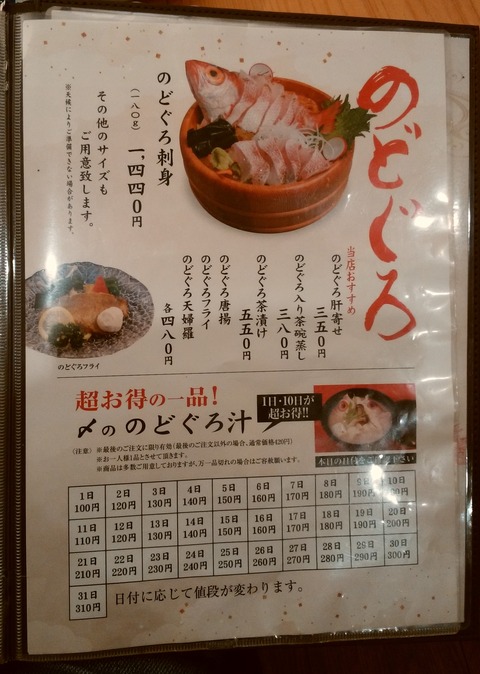 のどぐろ
のどぐろ刺身
(一八〇g) 一,四四〇円
その他のサイズも
ご用意致します。
※天候によりご準備できない場合があります。
当店おすすめ
のどぐろ肝寄せ
三五〇円
のどぐろ入り茶碗蒸し
三八〇円
のどぐろ茶漬け
五五〇円
のどぐろ唐揚
のどぐろフライ
のどぐろ天婦羅
各四八〇円
のどぐろフライ
超お得の一品!
〆ののどぐろ汁
1日・10日が
超お得!!
(注意) ※最後のご注文に限り有効(最後のご注文以外の場合、通常価格420円)
※お一人様1品とさせて頂きます。
※商品は多数ご用意しておりますが、万一品切れの場合はご容赦願います。
本日の日付をご
下さい
1日 2日 3日 4日 5日 6日 7日 8日 9日 10日
100円 120円 130円 140円 150円 160円 170円 180円 190円 100円
11日 12日 13日 14日 15日 16日 17日 18日 19日 20日
110円 120円 130円 140円 150円 160円 170円 180円 190円 200円
21日 22日 23日 24日 25日 26日 27日 28日 29日 30日
210円 220円 230円 240円 250円 260円 270円 280円 290円 300円
31日
310円
日付に応じて値段が変わります。